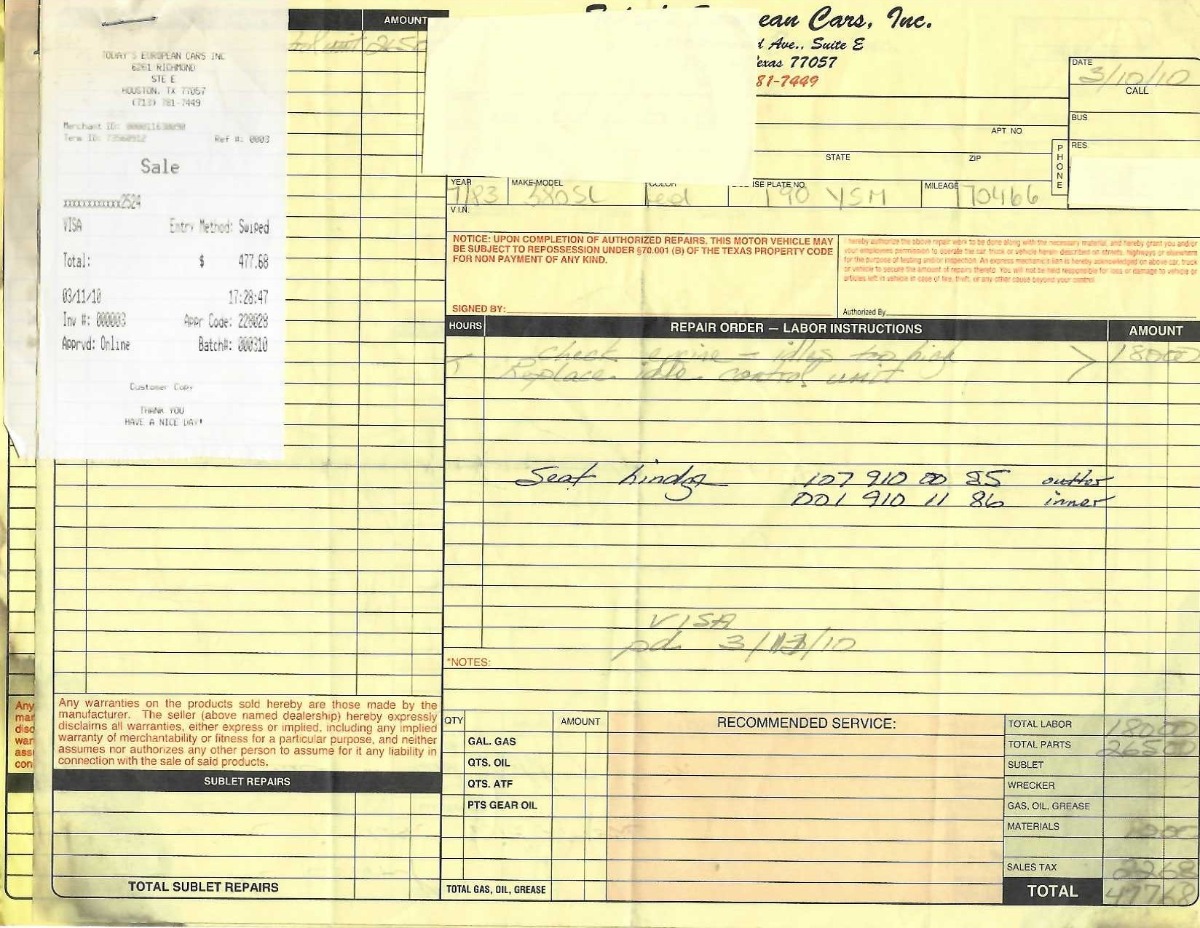 TODAY'S EUROPEAN CARS INC
6261 RICHMOND
STE E
HOUSTON, TX 77057
(713) 781-7449
Merchant ID:
Term ID:
Ref #: 0003
Sale
xxxxxxxxxxxx2524
VISA Entry Method: Swiped
Total: $ 477.68
03/11/10 17:28:47
Inv #: 000003 Appr Code: 228028
Apprvd: Online Batch#: 000310
Customer Copy
THANK YOU
HAVE A NICE DAY!
AMOUNT
control unit 265
ean Cars, Inc.
d Ave., Suite E
exas 77057
81-7449
DATE
3/10/10
CALL
BUS
RES.
PHONE
APT NO.
STATE ZIP
YEAR MAKE-MODEL COLOR SE PLATE NO. MILEAGE
7/83 380SL red 190 YSM 170466
V.I.N.
NOTICE: UPON COMPLETION OF AUTHORIZED REPAIRS, THIS MOTOR VEHICLE MAY
BE SUBJECT TO REPOSSESSION UNDER §70.001 (B) OF THE TEXAS PROPERTY CODE
FOR NON PAYMENT OF ANY KIND.
SIGNED BY:
I hereby authorize the above repair work to be done along with the necessary material, and hereby grant you and/or
your employees permission to operate the car, truck or vehicle herein described on streets, highways or elsewhere
for the purpose of testing and/or inspection. An express mechanic's lien is hereby acknowledged on above car, truck
or vehicle to secure the amount of repairs thereto. You will not be held responsible for loss or damage to vehicle or
articles left in vehicle in case of fire, theft, or any other cause beyond your control.
Authorized By
HOURS REPAIR ORDER — LABOR INSTRUCTIONS AMOUNT
Check engine - idles too high 18000
Replace idle control unit
Seat hindge 107 910 00 85 outter
001 910 11 86 inner
VISA
pd. 3/11/10
*NOTES:
Any warranties on the products sold hereby are those made by the
manufacturer. The seller (above named dealership) hereby expressly
disclaims all warranties, either express or implied, including any implied
warranty of merchantability or fitness for a particular purpose, and neither
assumes nor authorizes any other person to assume for it any liability in
connection with the sale of said products.
SUBLET REPAIRS
TOTAL SUBLET REPAIRS
QTY AMOUNT
GAL. GAS
QTS. OIL
QTS. ATF
PTS GEAR OIL
TOTAL GAS, OIL, GREASE
RECOMMENDED SERVICE:
TOTAL LABOR 18000
TOTAL PARTS 26500
SUBLET
WRECKER
GAS, OIL, GREASE
MATERIALS 1000
SALES TAX 2268
TOTAL 47768
Any
mar
disc
war
ass
con